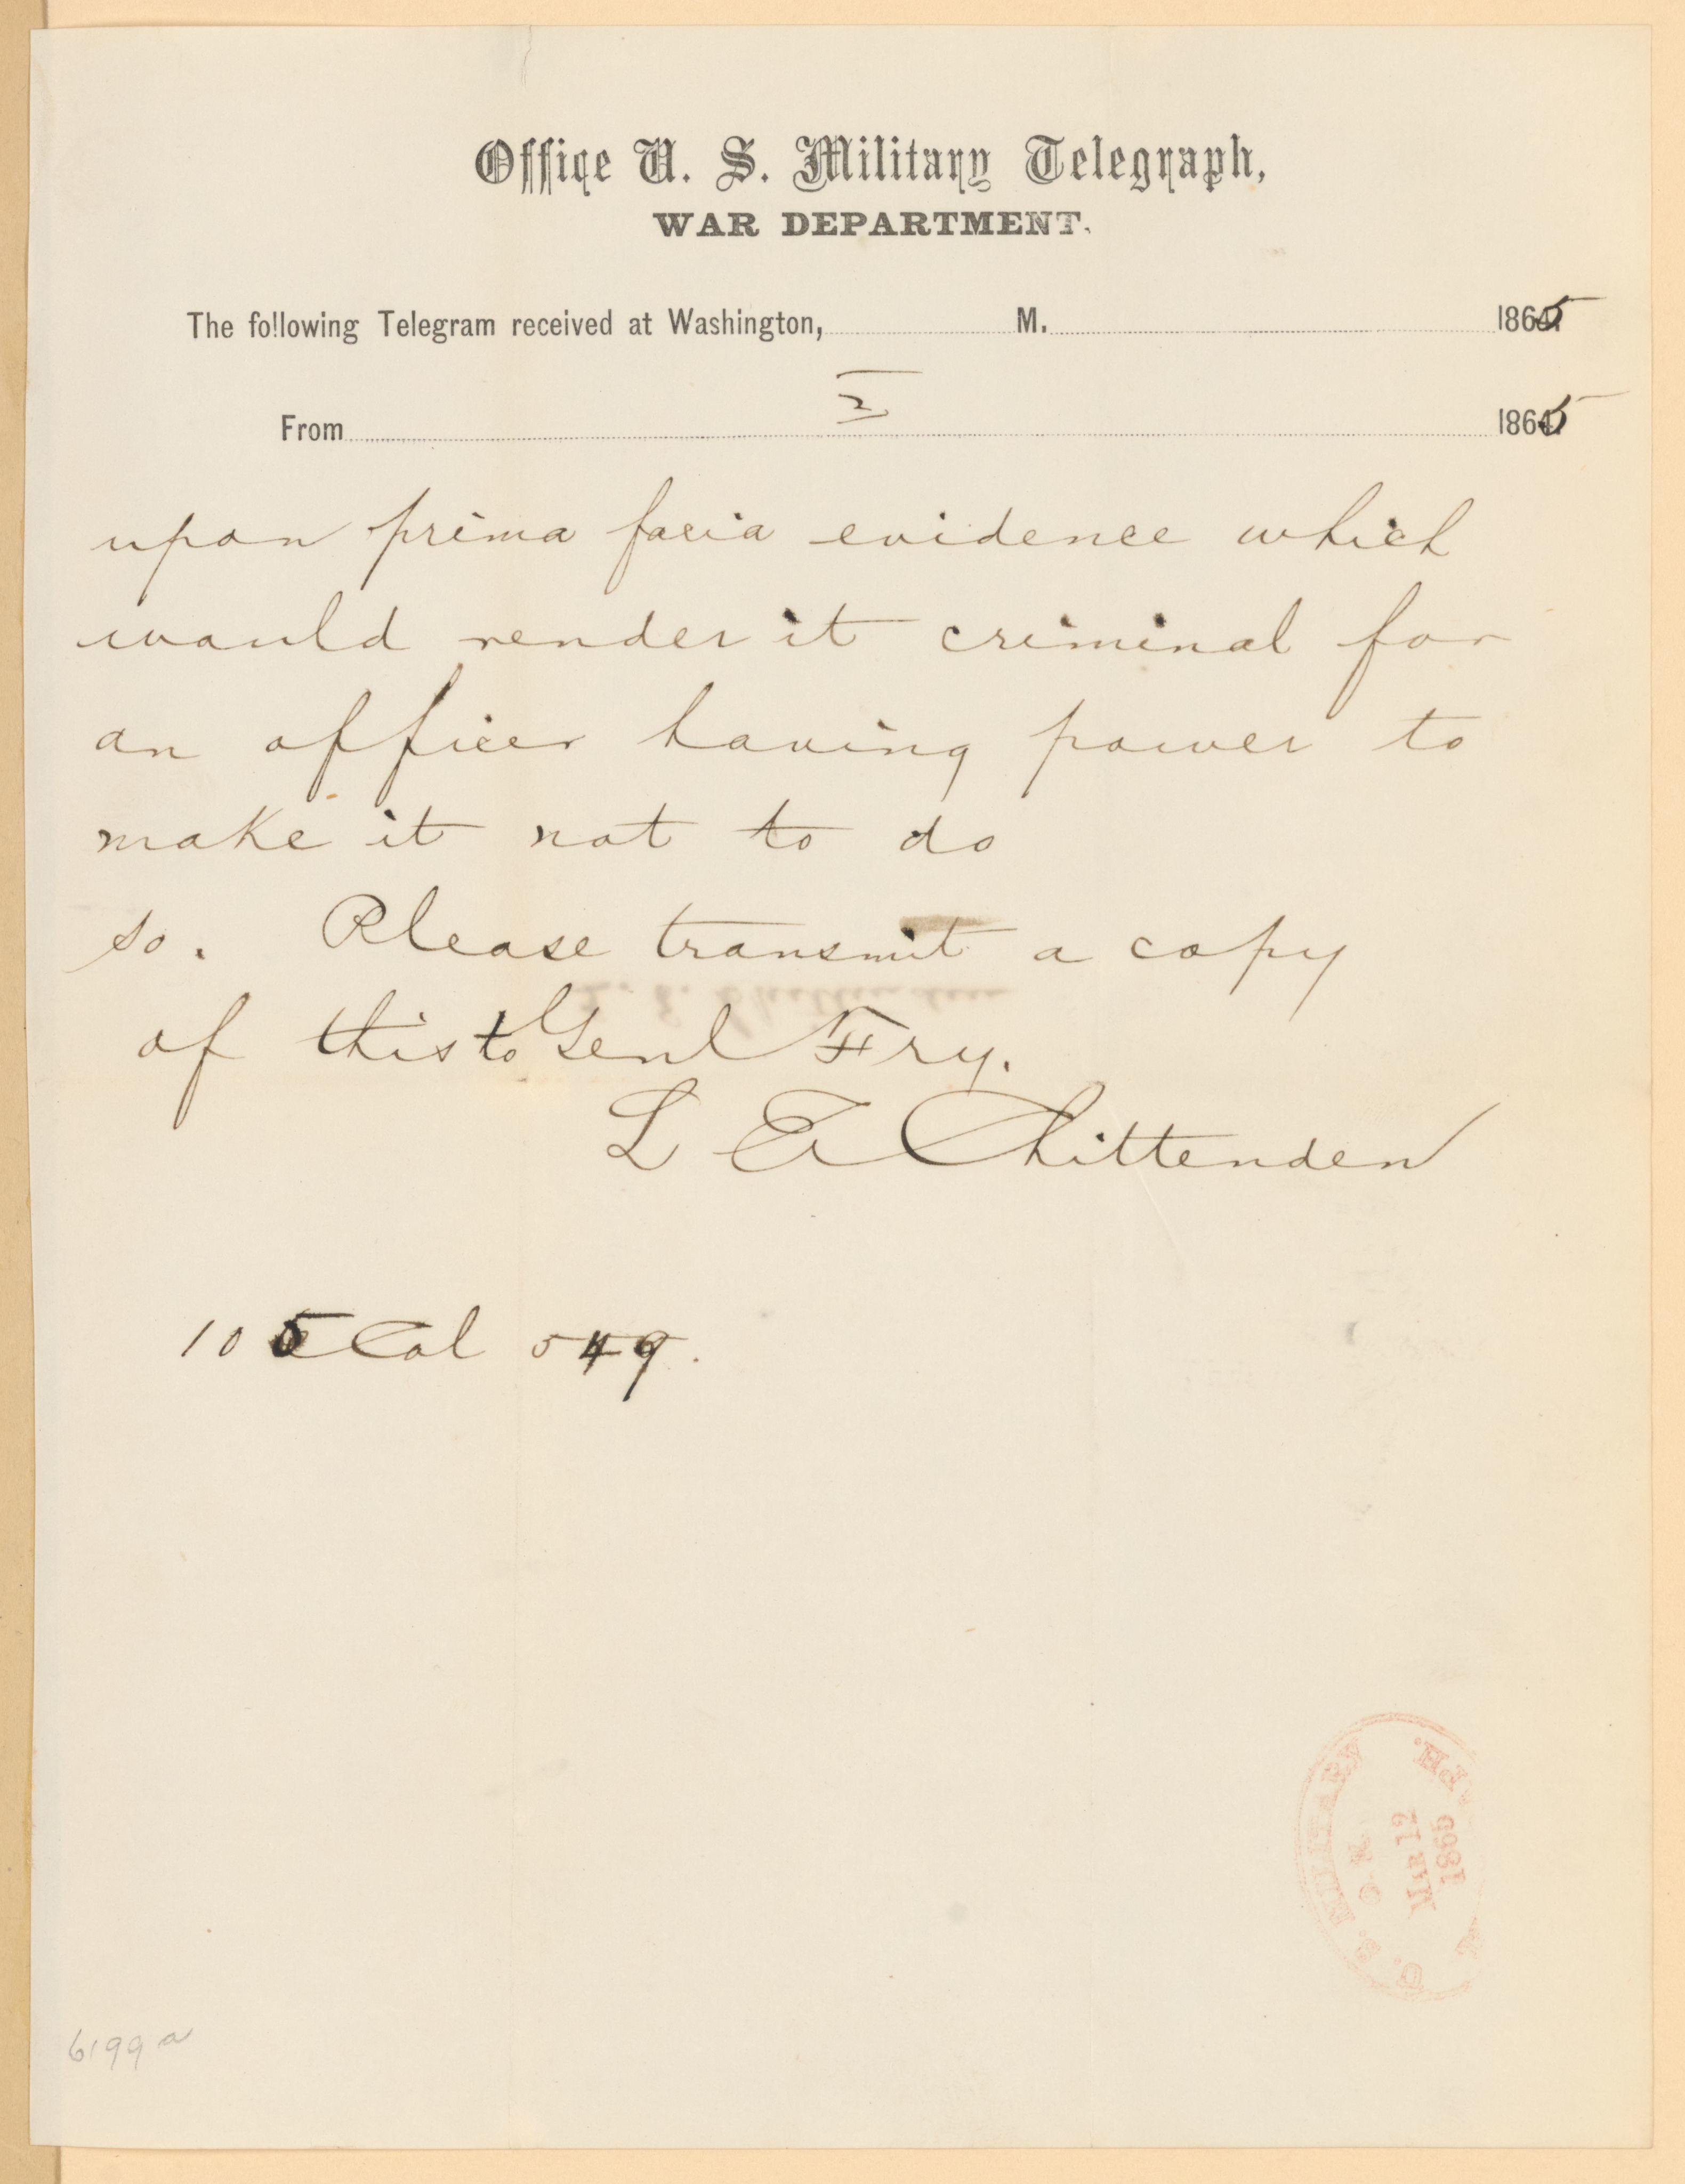 Office U. S. Military Telegraph,
WAR DEPARTMENT.
The following Telegram received at Washington, M. 1865
From 2 1865
upon prima facia evidence which
would render it criminal for
an officer having power to
make it not to do
so. Please transmit a copy
of this to Genl Fry.
L E Chittenden
105 Col 549.
U. S. MILITARY PH.
MAR 12
186
6199 a